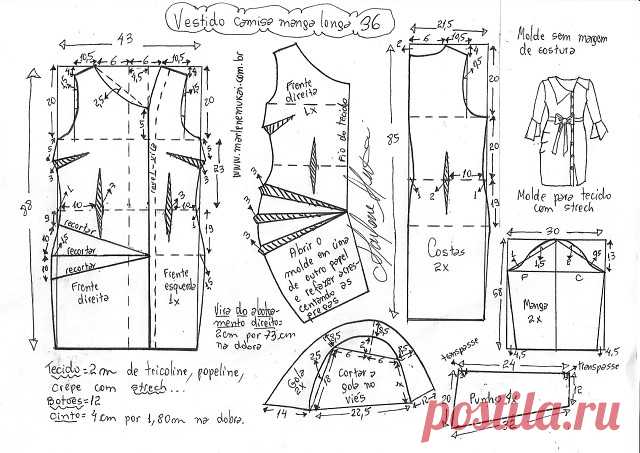 Vestido camisa manga longa 36
43
10,5 6 6 10,5
4,5
4
20
20
2,5
5
88
23
3
3
10
10
19
9
10
10
recortar
recortar
recortar
Frente direita
Frente esquerda
1x
www.marlenemukai.com.br
Frente direita
1x
Fio do tecido
3
3
3
3
Abrir o
molde em uma
de outro papel
e refazer acres-
centando as
pregas
Vira do abotoa-
mento direito=
2cm por 73cm
na dobra
Marlene Mukai
21,5
2 6 10,5
4
20
20
85
10
1 2 1
19
Costas
2x
Molde sem margem
de costura
Molde para tecido
com strech
30
13
58
F C
Manga
2x
4,5 4,5
Tecido=2m de tricoline, popeline,
crepe com strech...
Botões=12
Cinto=4cm por 1,80m na dobra.
Gola 2x
Cortar a
gola no
viés
14 22,5
18
transpasse
24
transpasse
20
12
Punho 4x
32
postila.ru